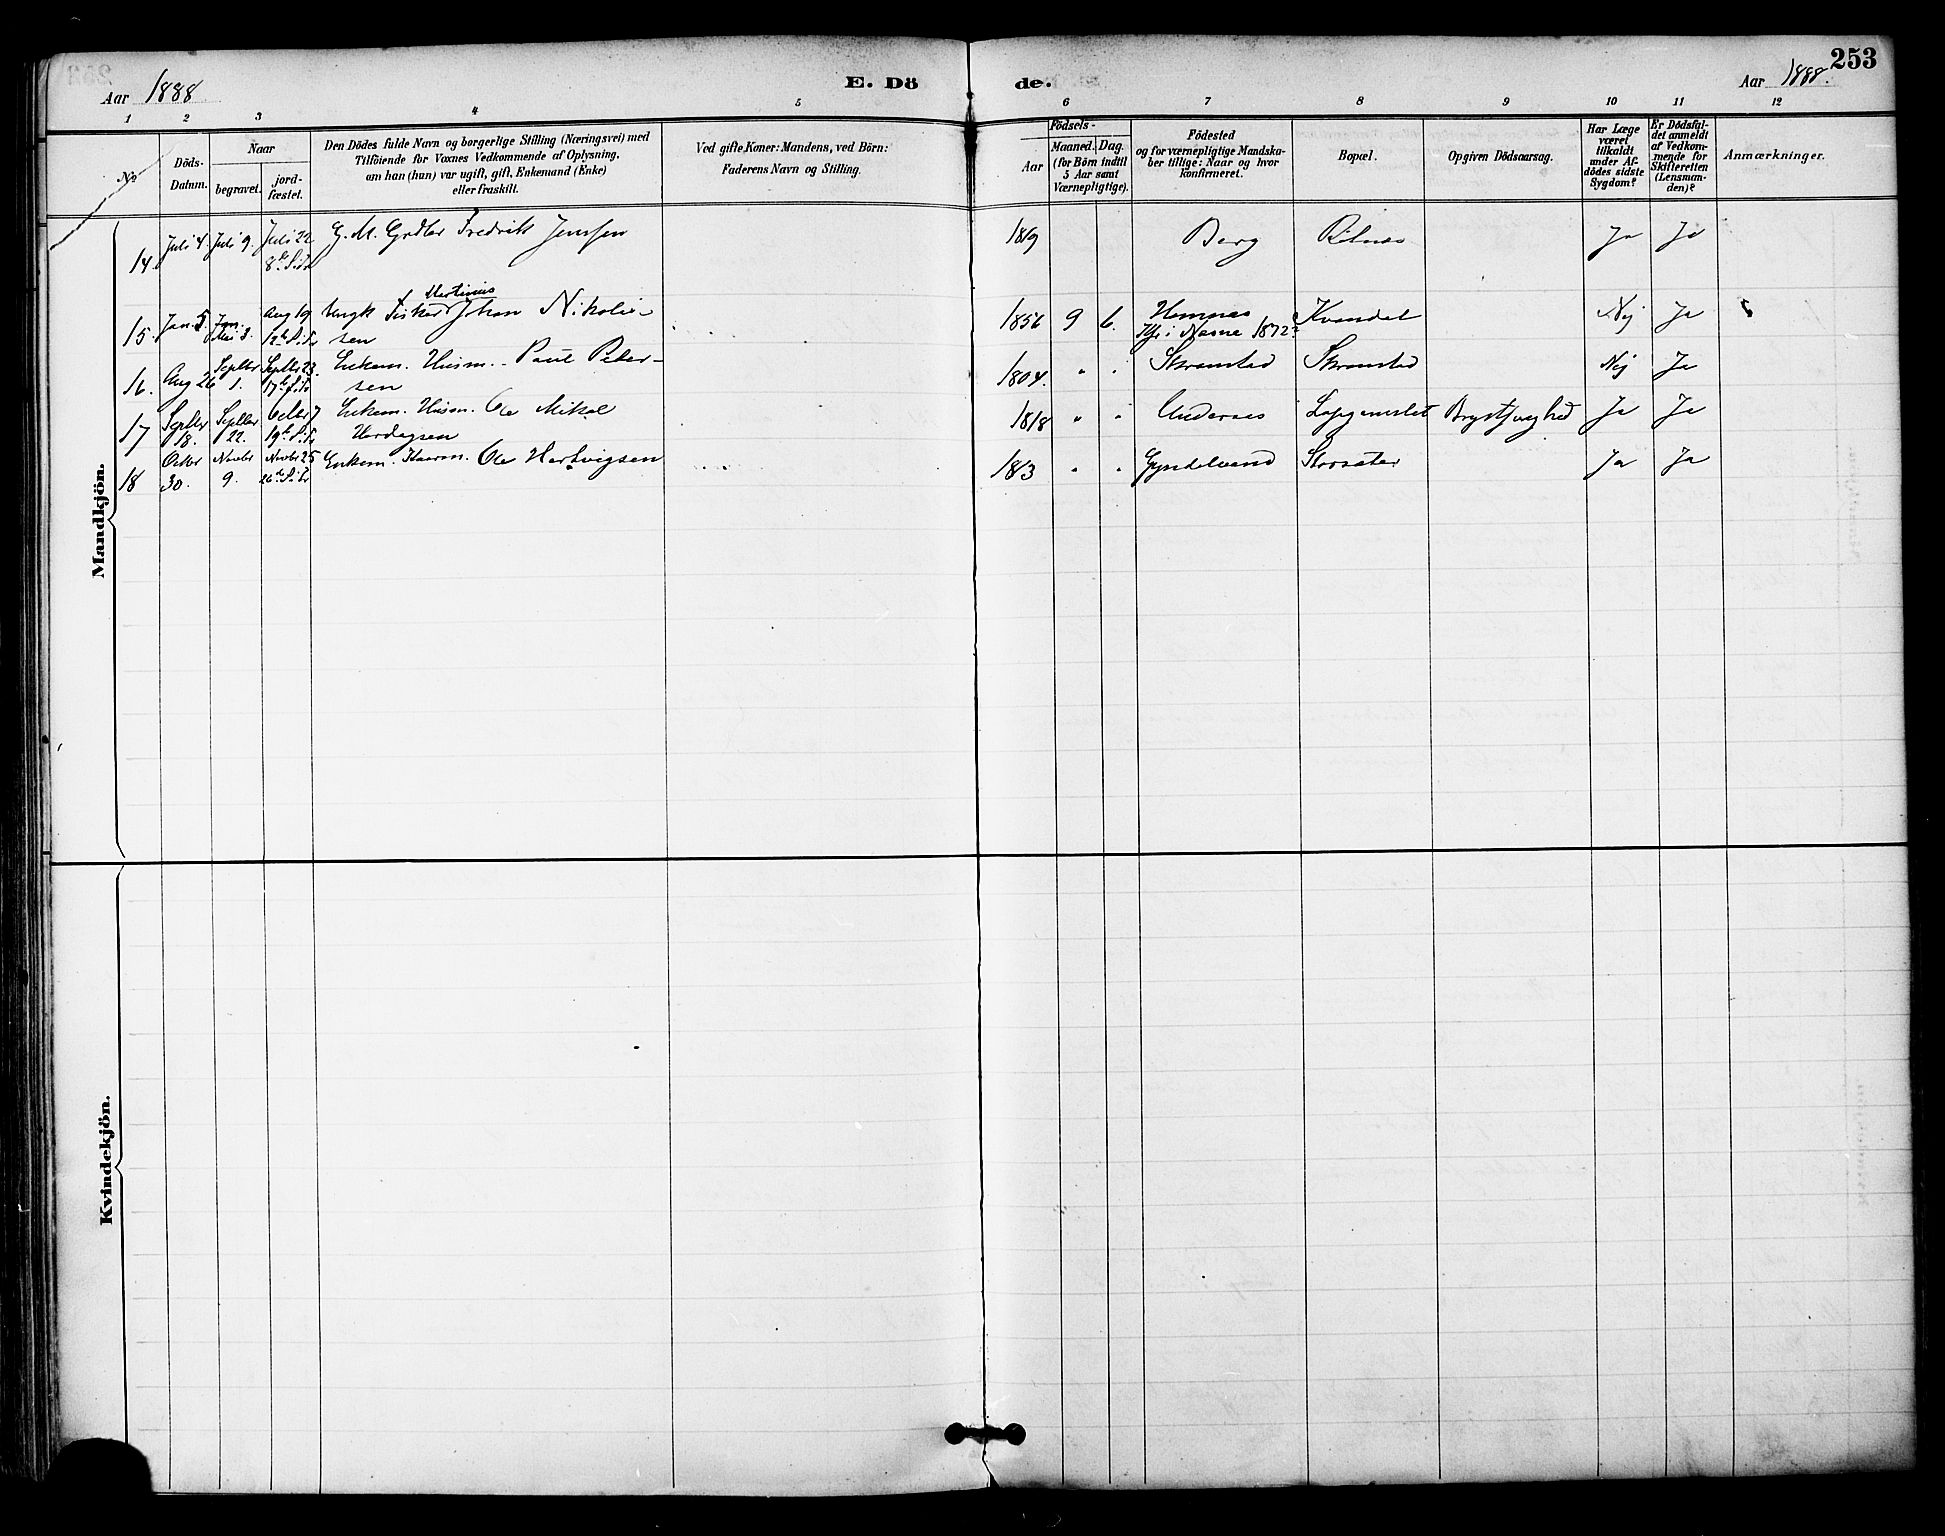 253
Aar 1888
E. Dö de.
Aar 1888.
1 2 3 4 5 6 7 8 9 10 11 12
No
Döds-
Datum.
Naar
begravet.
jord-
fæstet.
Den Dödes fulde Navn og borgerlige Stilling (Næringsvei) med
Tilföiende for Voxnes Vedkommende af Oplysning,
om han (hun) var ugift, gift, Enkemand (Enke)
eller fraskilt.
Ved gifte Koner: Mandens, ved Börn:
Faderens Navn og Stilling.
Födsels-
Aar
Maaned. Dag.
(for Börn indtil
5 Aar samt
Værnepligtige).
Födested
og for værnepligtige Mandska-
ber tillige: Naar og hvor
konfirmeret.
Bopæl.
Opgiven Dödsaarsag.
Har Læge
været
tilkaldt
under Af-
dödes sidste
Sygdom?
Er Dödsfal-
det anmeldt
af Vedkom-
mende for
Skifteretten
(Lensman-
den)?
Anmærkninger.
Mandkjön.
14. Juli 4. Juli 9. Juli 22 G. M. Fredrik Jenssen 1819 Berg Ja Ja
8de S.
15. Jan. 5. Jan. Aug 19 Ungk Fisker Johan Martinius Nikolai- 1856 9 6. Hemnes Kvandal Nej Ja
12te S. sen i Nesne 1872
16. Aug 26 Septbr 1. Septbr 23. Enkem. Husm. Paul Peter- 1804. " " Skramstad Skramstad Nej Ja
17de S. sen
17 Septbr 18. Septbr 22. Octbr 7 Enkem. Husm. Ole Mikal 1818 " " Andernes Ja Ja
19de S.
18 Octbr 30. Novbr 9. Novbr 25 Enkem. Ole Hartvigsen 1813 " " Ja Ja
26de S.
Kvindekjön.